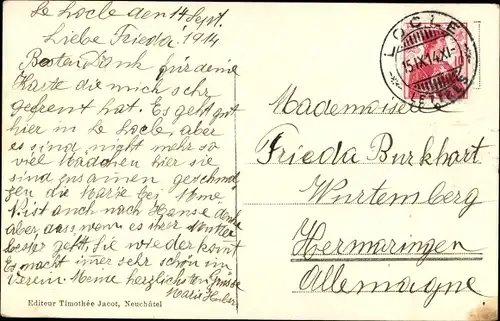 Le Locle den 14 Sept.
1914
Liebe Frieda
Besten Dank für deine
Karte die mich sehr
gefreut hat. Es geht gut
hier in Le Locle, aber
es sind nicht mehr so
viel Mädchen hier sie
sind zusammen geschmol
gen die Marie bei Mme
ist auch nach Hause
aber, dass wenn es ihrer Mutter
besser geht sie wieder komt
Es macht imer sehr schön im
Verein. Meine herzlichsten Grüsse
Marie
Editeur Timothée Jacot, Neuchâtel
LOCLE
15.IX.14.XI-
LETTRES
Mademoiselle
Frieda Burkhart
Wurtemberg
Hermaringen
Allemagne